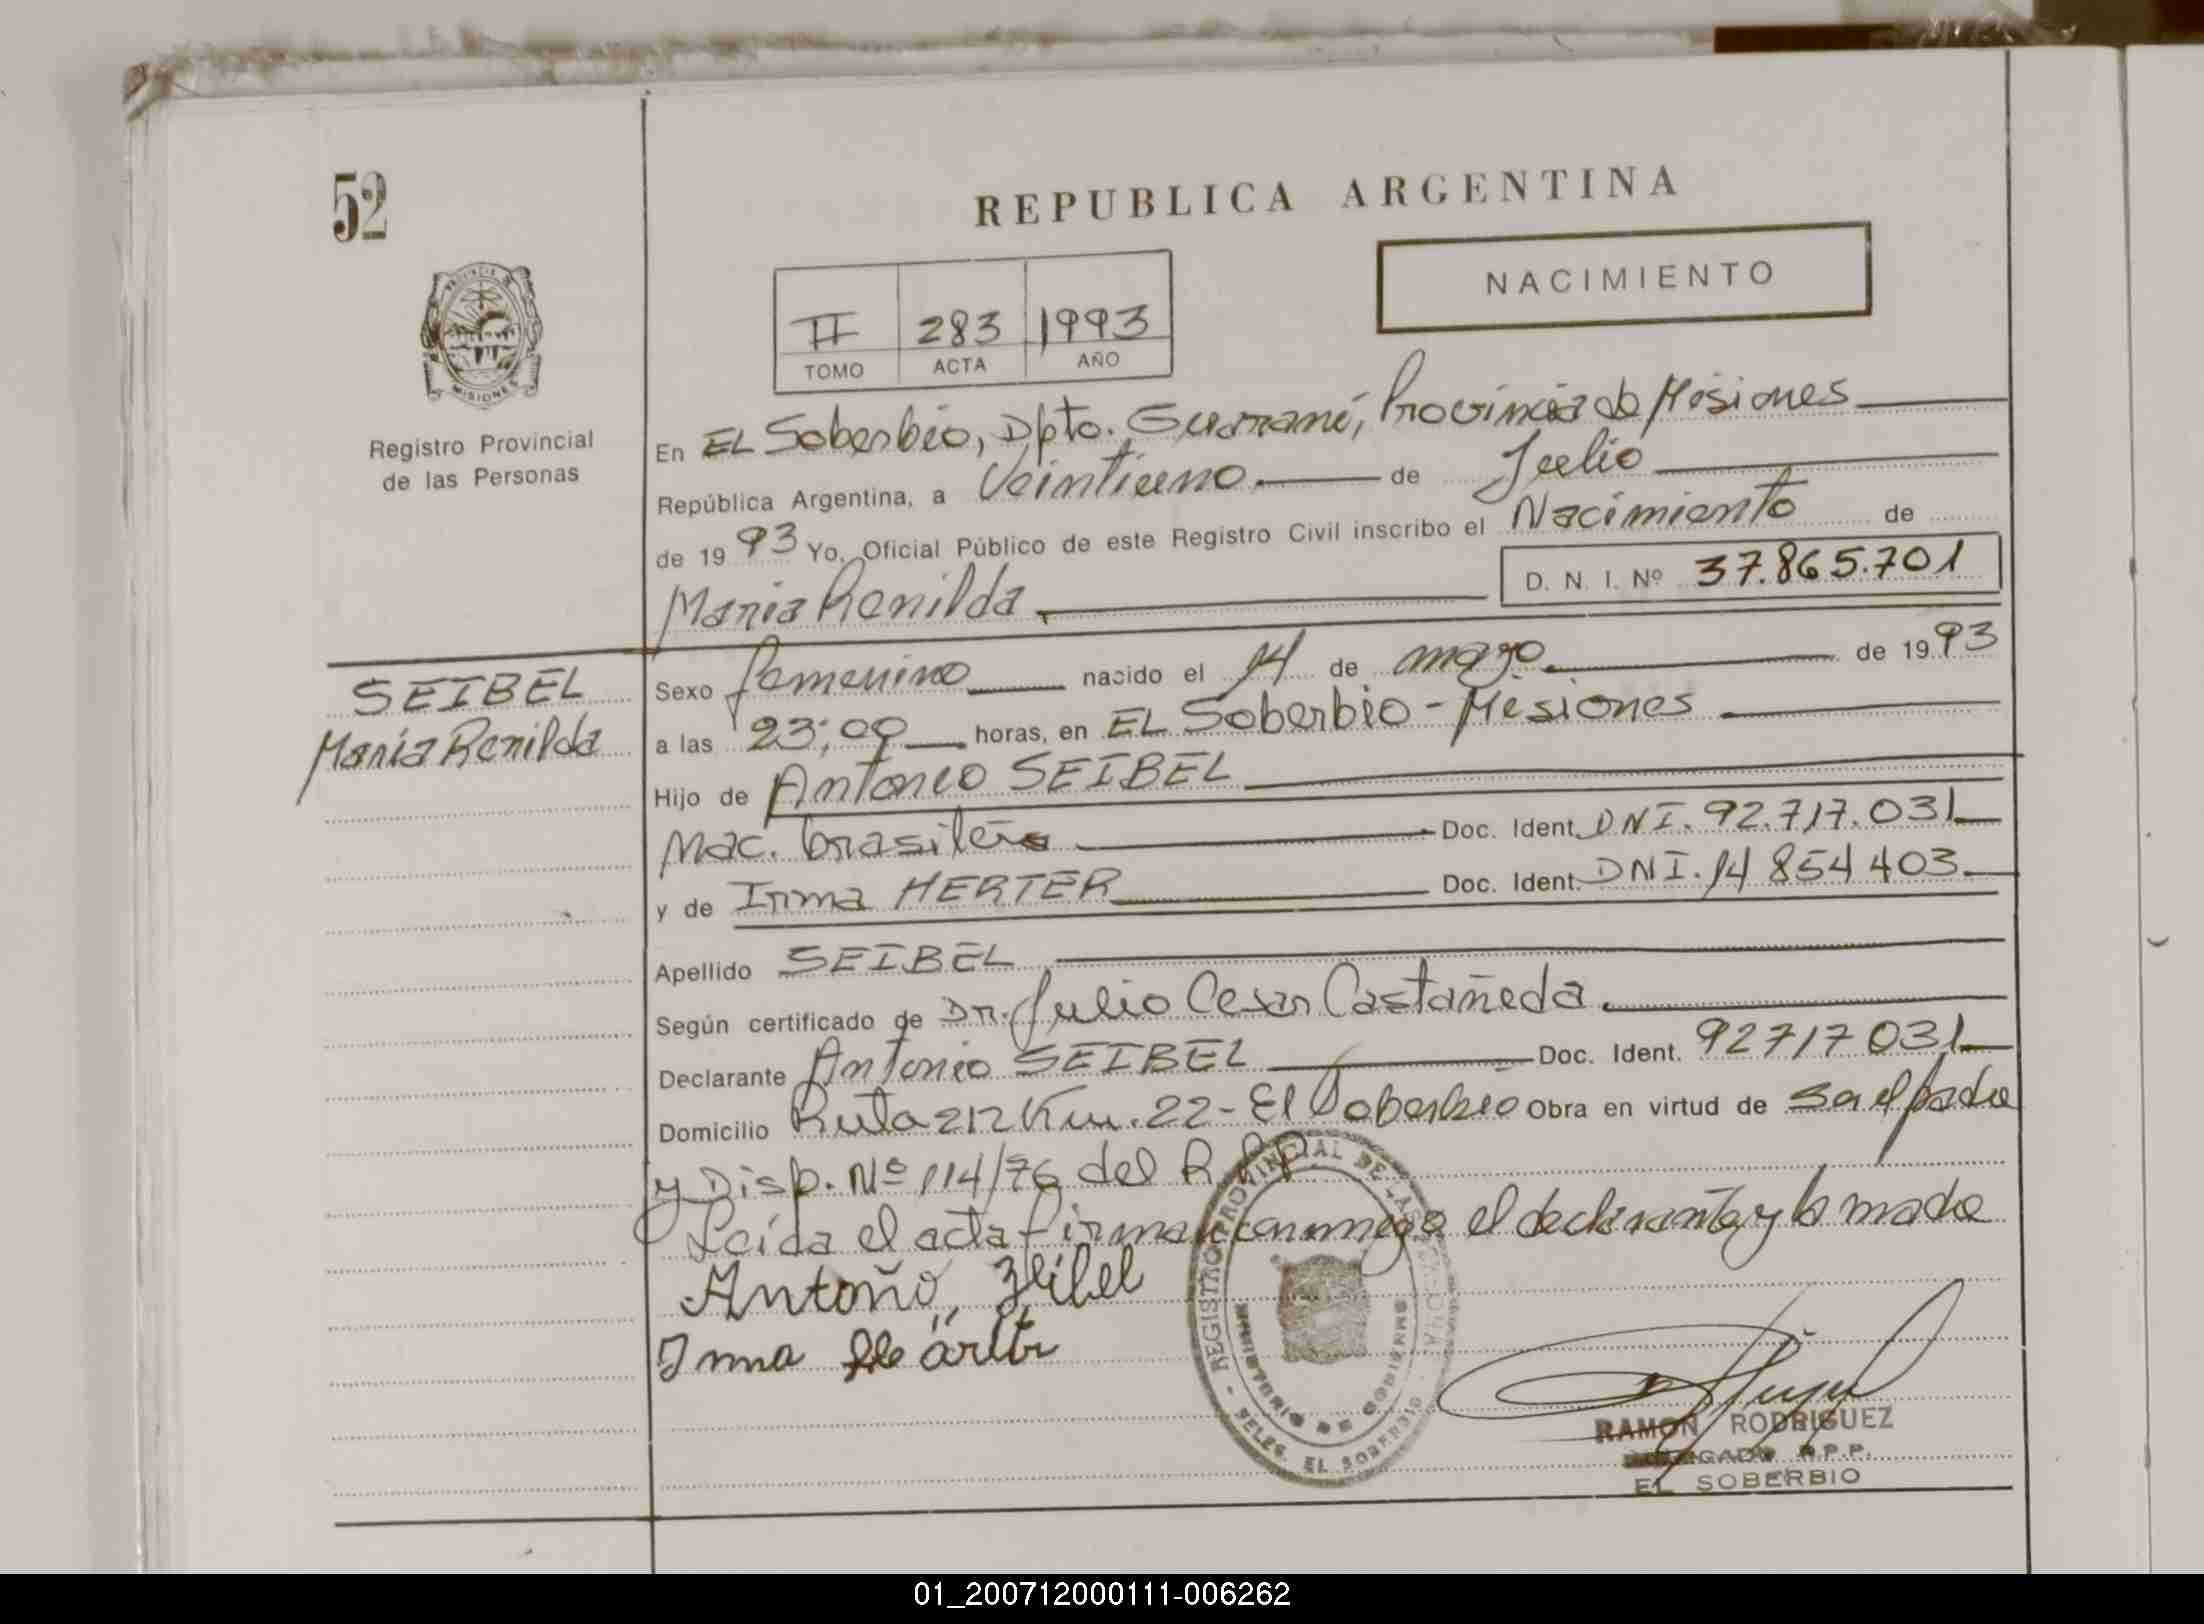 52
REPUBLICA ARGENTINA
NACIMIENTO
II 283 1993
TOMO ACTA AÑO
PROVINCIA DE MISIONES
Registro Provincial
de las Personas
En EL Soberbio, Dpto. Guaraní, Provincia de Misiones
República Argentina, a Veintiuno de Julio
de 1993 Yo, Oficial Público de este Registro Civil inscribo el Nacimiento de
Maria Renilda D. N. I. Nº 37.865.701
SEIBEL
Maria Renilda
Sexo femenino nacido el 14 de mayo de 1993
a las 23:00 horas, en EL Soberbio - Misiones
Hijo de Antonio SEIBEL
Nac. brasileña Doc. Ident. DNI. 92.717.031
y de Irma HERTER Doc. Ident. DNI. 14 854 403
Apellido SEIBEL
Según certificado de Dr. Julio Cesar Castañeda
Declarante Antonio SEIBEL Doc. Ident. 92717031
Domicilio Ruta 212 Km. 22 - El Soberbio Obra en virtud de ser el padre
y Disp. Nº 114/76 del R.P.P.
Leída el acta firman conmigo el declarante y la madre
Antoño Zeibel
Irma
REGISTRO PROVINCIAL DE LAS PERSONAS
MINISTERIO DE GOBIERNO
DELEG. EL SOBERBIO
RAMON RODRIGUEZ
DELEGADO R.P.P.
EL SOBERBIO
01_200712000111-006262